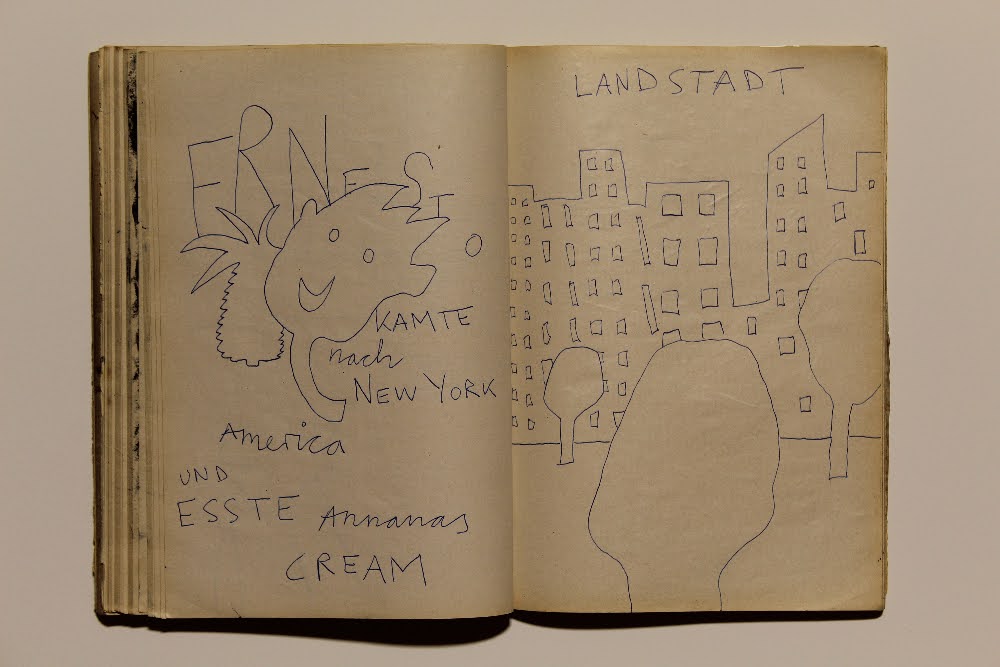 ERNESTO
KAMTE
nach
NEW YORK
America
UND
ESSTE Annanas
CREAM
LANDSTADT